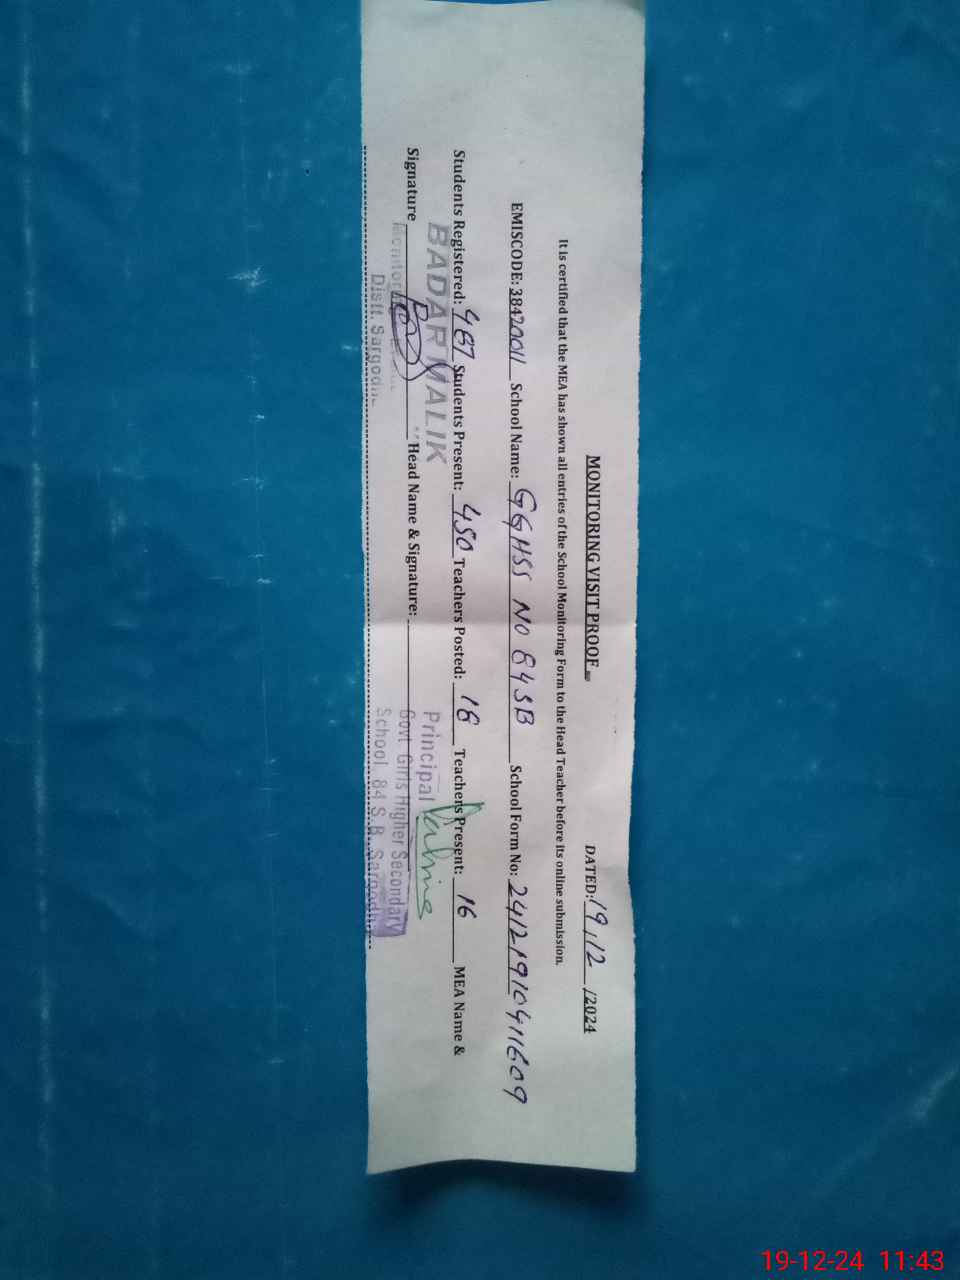 MONITORING VISIT PROOF
DATED: 19/12/2024
It is certified that the MEA has shown all entries of the School Monitoring Form to the Head Teacher before its online submission.
EMISCODE: 38420011 School Name: GGHSS NO 84 SB School Form No: 24121910411609
Students Registered: 487 Students Present: 450 Teachers Posted: 16 Teachers Present: 16 MEA Name &
Signature Head Name & Signature:
BADAR MALIK
Distt. Sargodha
Principal
Govt Girls Higher Secondary
School. 84 S.B. Sargodha
19-12-24 11:43